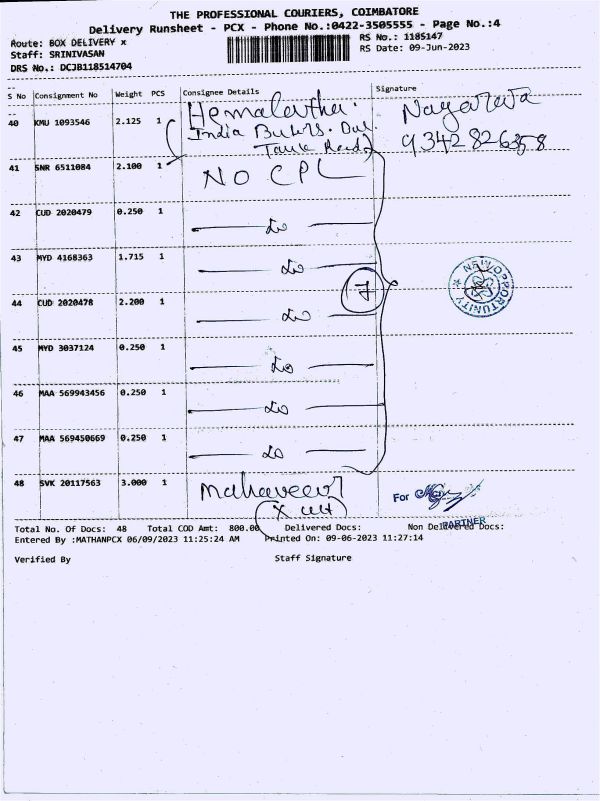 THE PROFESSIONAL COURIERS, COIMBATORE
Delivery Runsheet - PCX - Phone No.:0422-3505555 - Page No.:4
Route: BOX DELIVERY x RS No.: 1185147
Staff: SRINIVASAN RS Date: 09-Jun-2023
DRS No.: DCJB118514704
S No Consignment No Weight PCS Consignee Details Signature
40 KMU 1093546 2.125 1 Hemalatha. Nagaraja
India 9342826358
41 SNR 6511084 2.100 1 NO CPL
42 CUD 2020479 0.250 1 do
43 MYD 4168363 1.715 1 do
44 CUD 2020478 2.200 1 do 7
45 MYD 3037124 0.250 1 do
46 MAA 569943456 0.250 1 do
47 MAA 569450669 0.250 1 do
NEW OPPORTUNITY
48 SVK 20117563 3.000 1 mahaveer For
PARTNER
Total No. Of Docs: 48 Total COD Amt: 800.00 Delivered Docs: Non Delivered Docs:
Entered By :MATHANPCX 06/09/2023 11:25:24 AM Printed On: 09-06-2023 11:27:14
Verified By Staff Signature